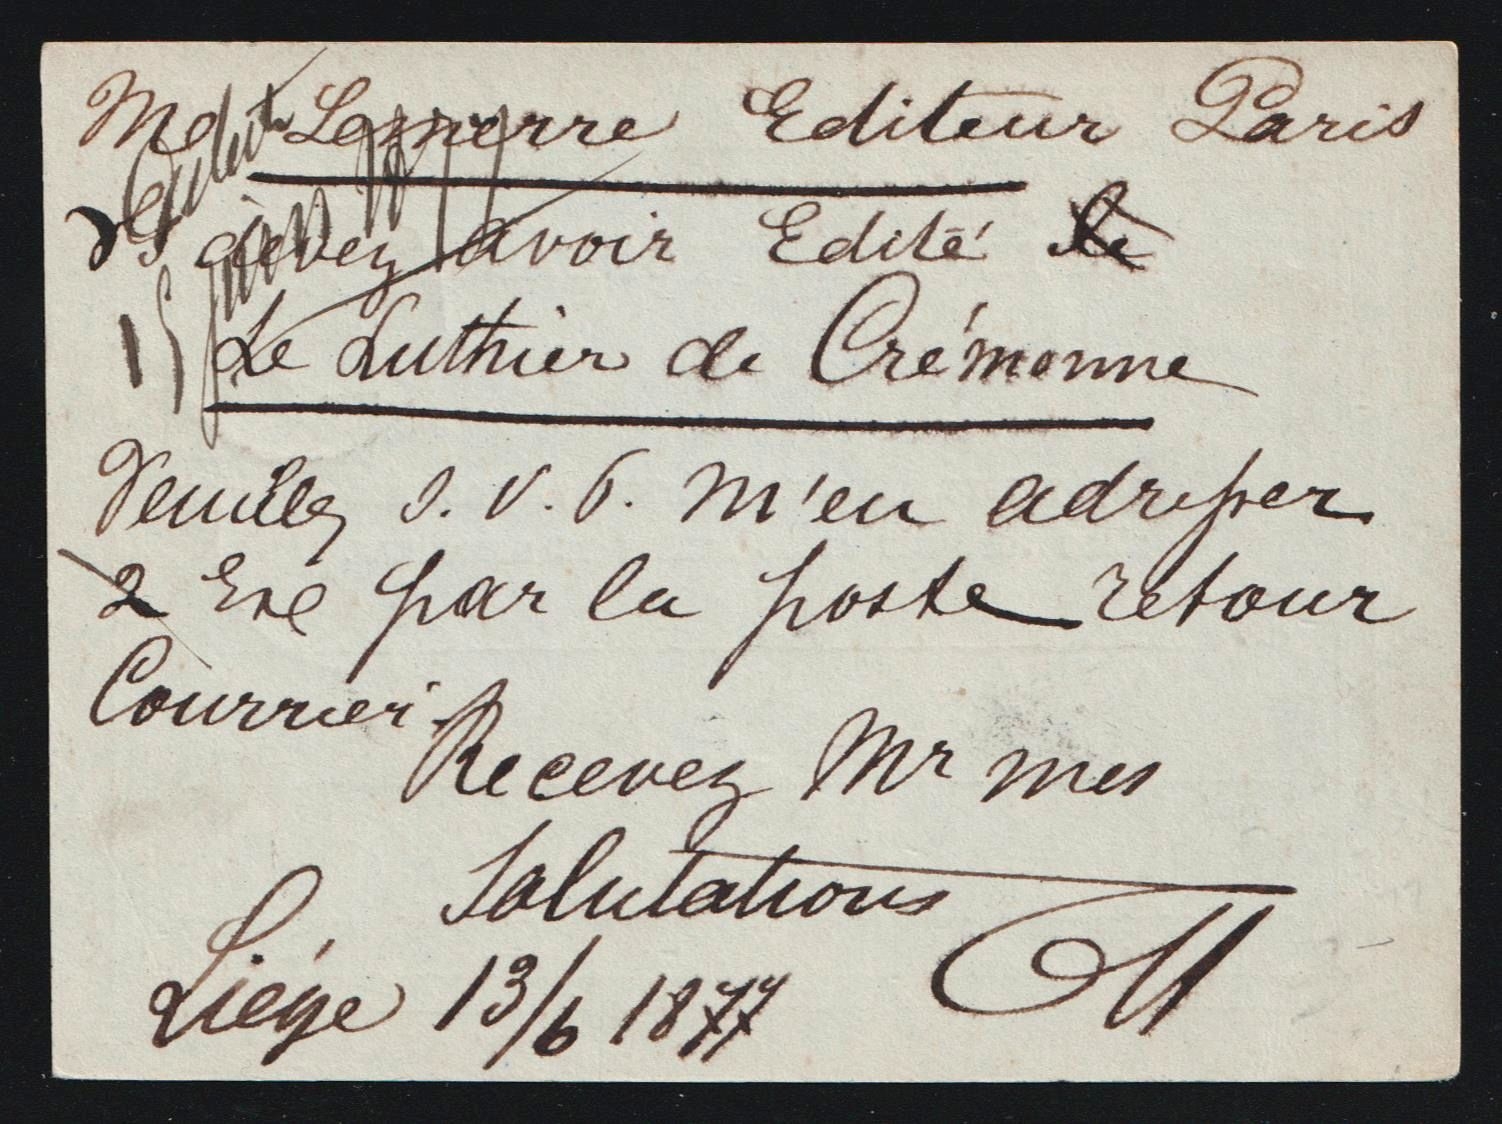 Md Lemerre Editeur Paris
devez avoir Edité le
Le Luthier de Crémonne
Veuillez S. V. P. m'en adresser
2 Exe par la poste retour
Courrier.
Recevez Mr mes
Salutations
Liége 13/6 1877
15 juin 1877